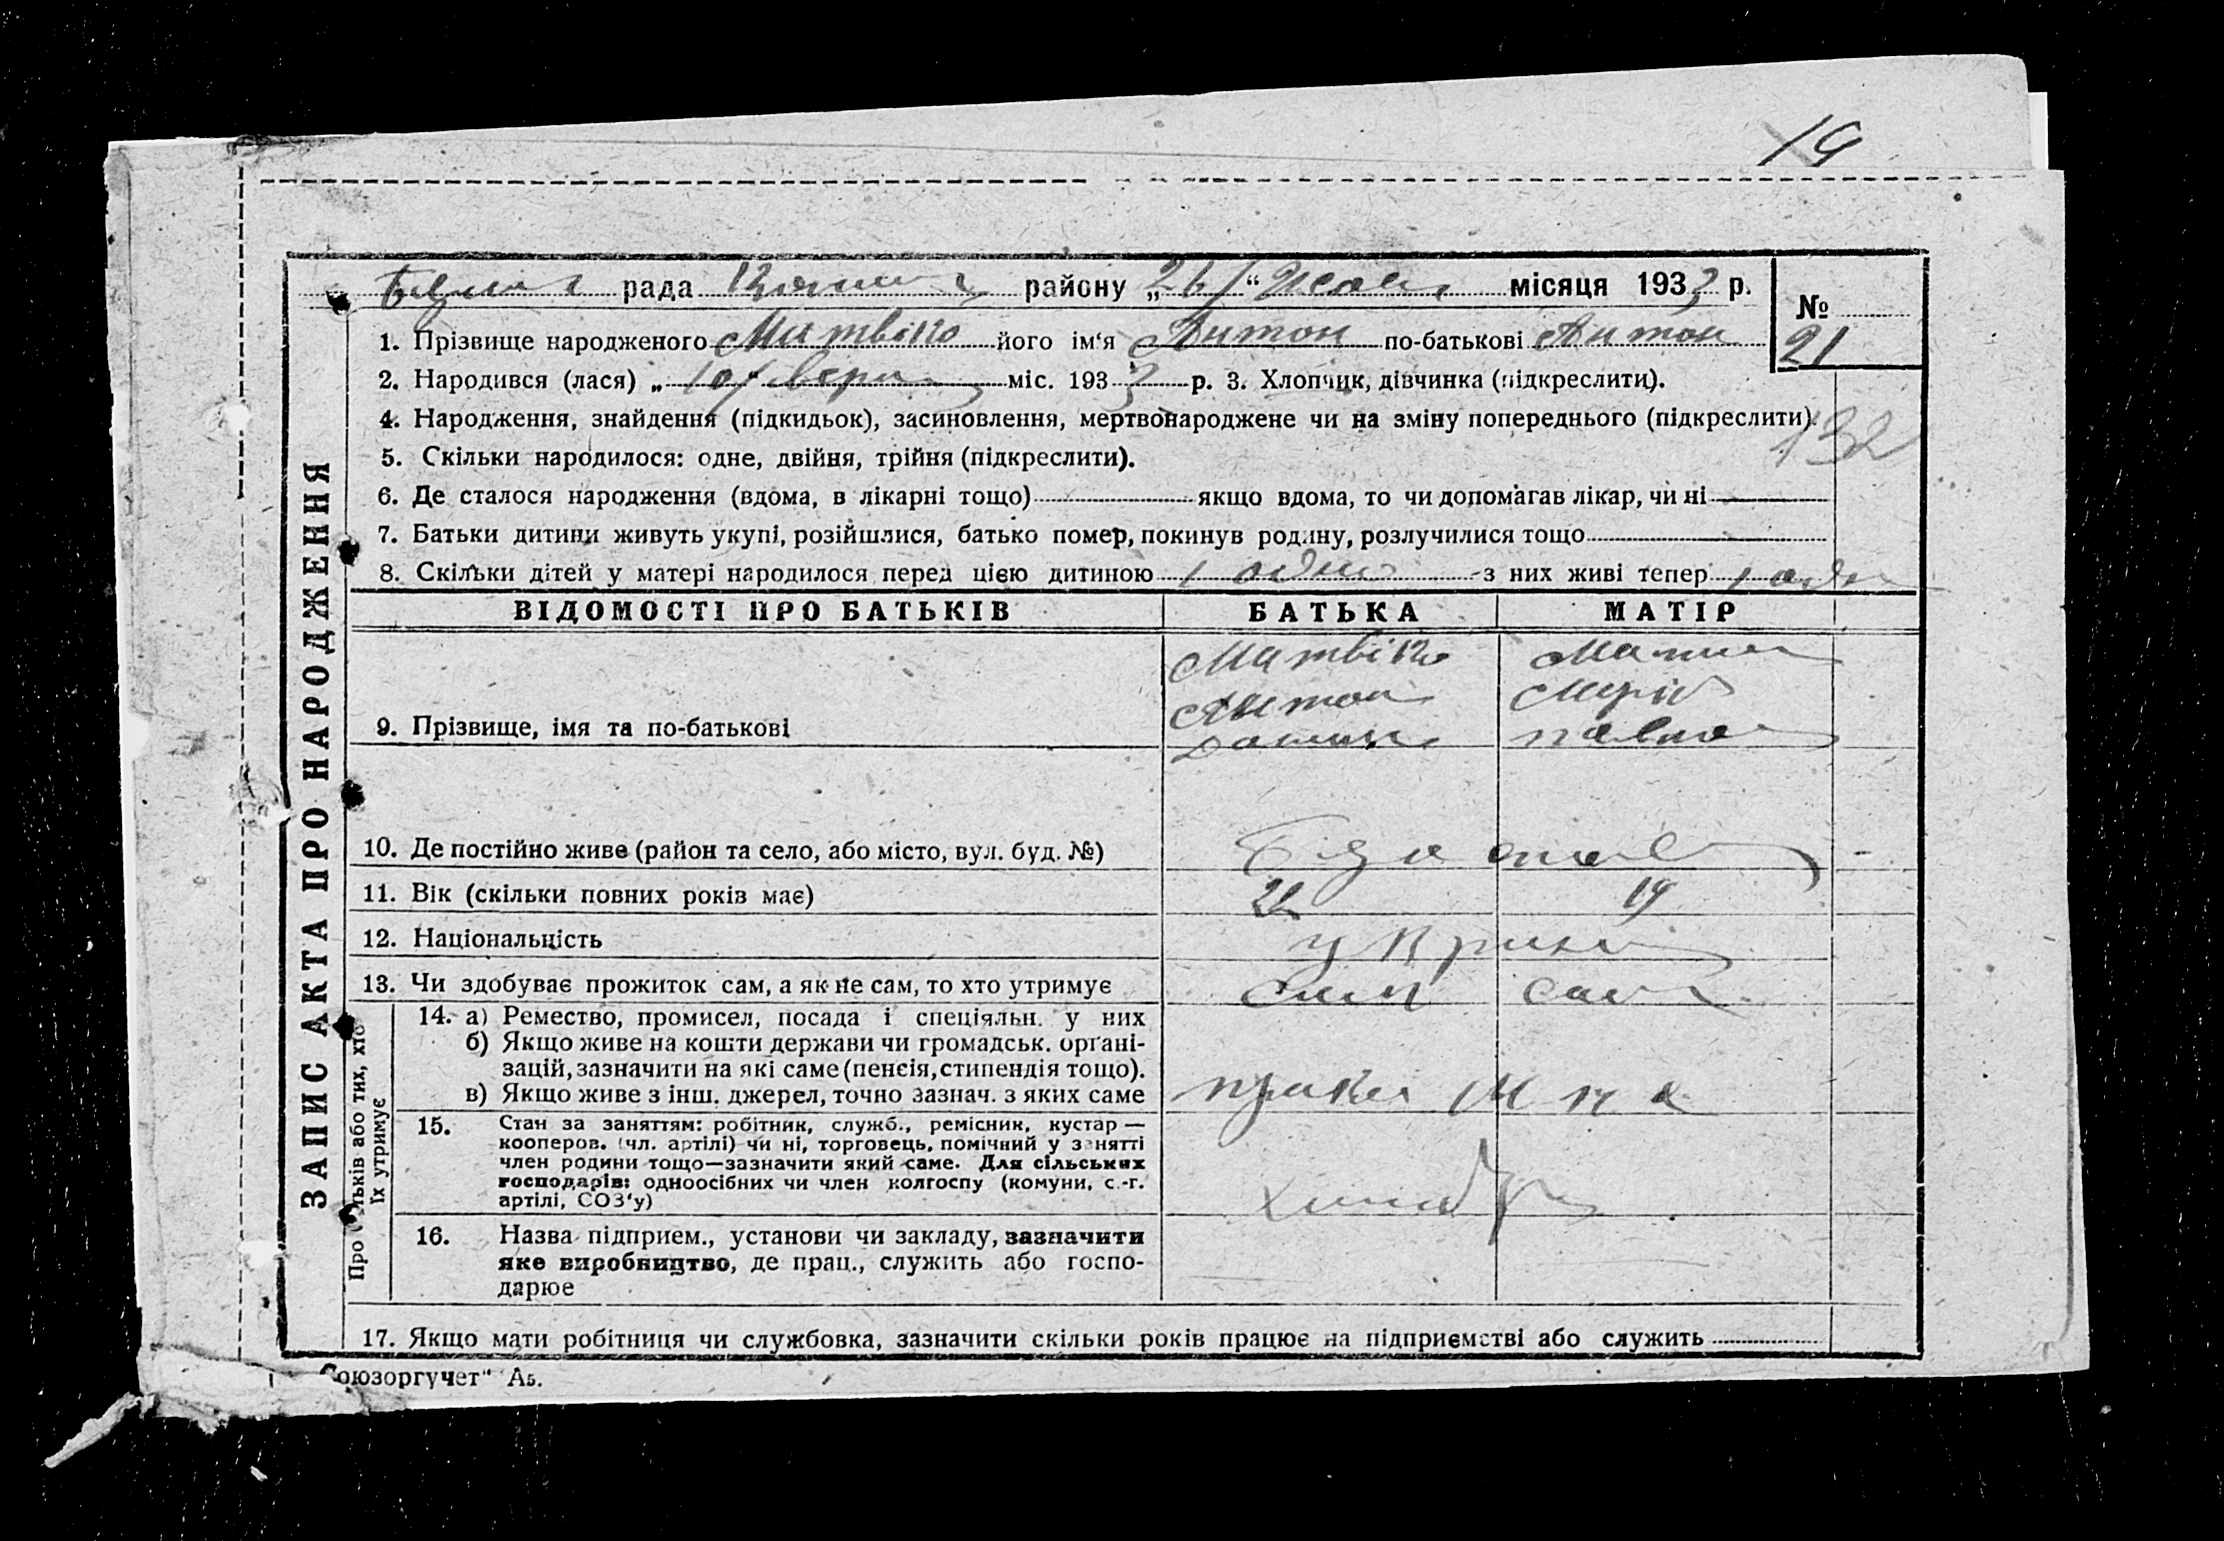 19
рада району „26“ місяця 1933 р.
№ 21
1. Прізвище народженого Матвіко його ім‘я Антон по-батькові Антон
2. Народився (лася) „10“ міс. 1933 р. 3. Хлопчик, дівчинка (підкреслити).
4. Народження, знайдення (підкидьок), засиновлення, мертвонароджене чи на зміну попереднього (підкреслити).
132
5. Скільки народилося: одне, двійня, трійня (підкреслити).
6. Де сталося народження (вдома, в лікарні тощо) якщо вдома, то чи допомагав лікар, чи ні
7. Батьки дитини живуть укупі, розійшлися, батько помер, покинув родину, розлучилися тощо
8. Скільки дітей у матері народилося перед цією дитиною 1 одно з них живі тепер 1 одн
ЗАПИС АКТА ПРО НАРОДЖЕННЯ
ВІДОМОСТІ ПРО БАТЬКІВ БАТЬКА МАТІР
Матвіко
Антон Марія
9. Прізвище, імя та по-батькові
10. Де постійно живе (район та село, або місто, вул. буд. №)
11. Вік (скільки повних років має) 22 19
12. Національність україн
13. Чи здобуває прожиток сам, а як не сам, то хто утримує сам сама
Про батьків або тих, хто
їх утримує
14. а) Ремество, промисел, посада і спеціяльн. у них
б) Якщо живе на кошти держави чи громадськ. органі-
зацій, зазначити на які саме (пенсія, стипендія тощо).
в) Якщо живе з інш. джерел, точно зазнач. з яких саме
15. Стан за заняттям: робітник, служб., ремісник, кустар —
кооперов. (чл. артілі) чи ні, торговець, помічний у занятті
член родини тощо—зазначити який саме. Для сільських
господарів: одноосібних чи член колгоспу (комуни, с.-г.
артілі, СОЗ‘у)
16. Назва підприєм., установи чи закладу, зазначити
яке виробництво, де прац., служить або госпо-
дарює
17. Якщо мати робітниця чи службовка, зазначити скільки років працює на підприємстві або служить
Союзоргучет“ Аз.